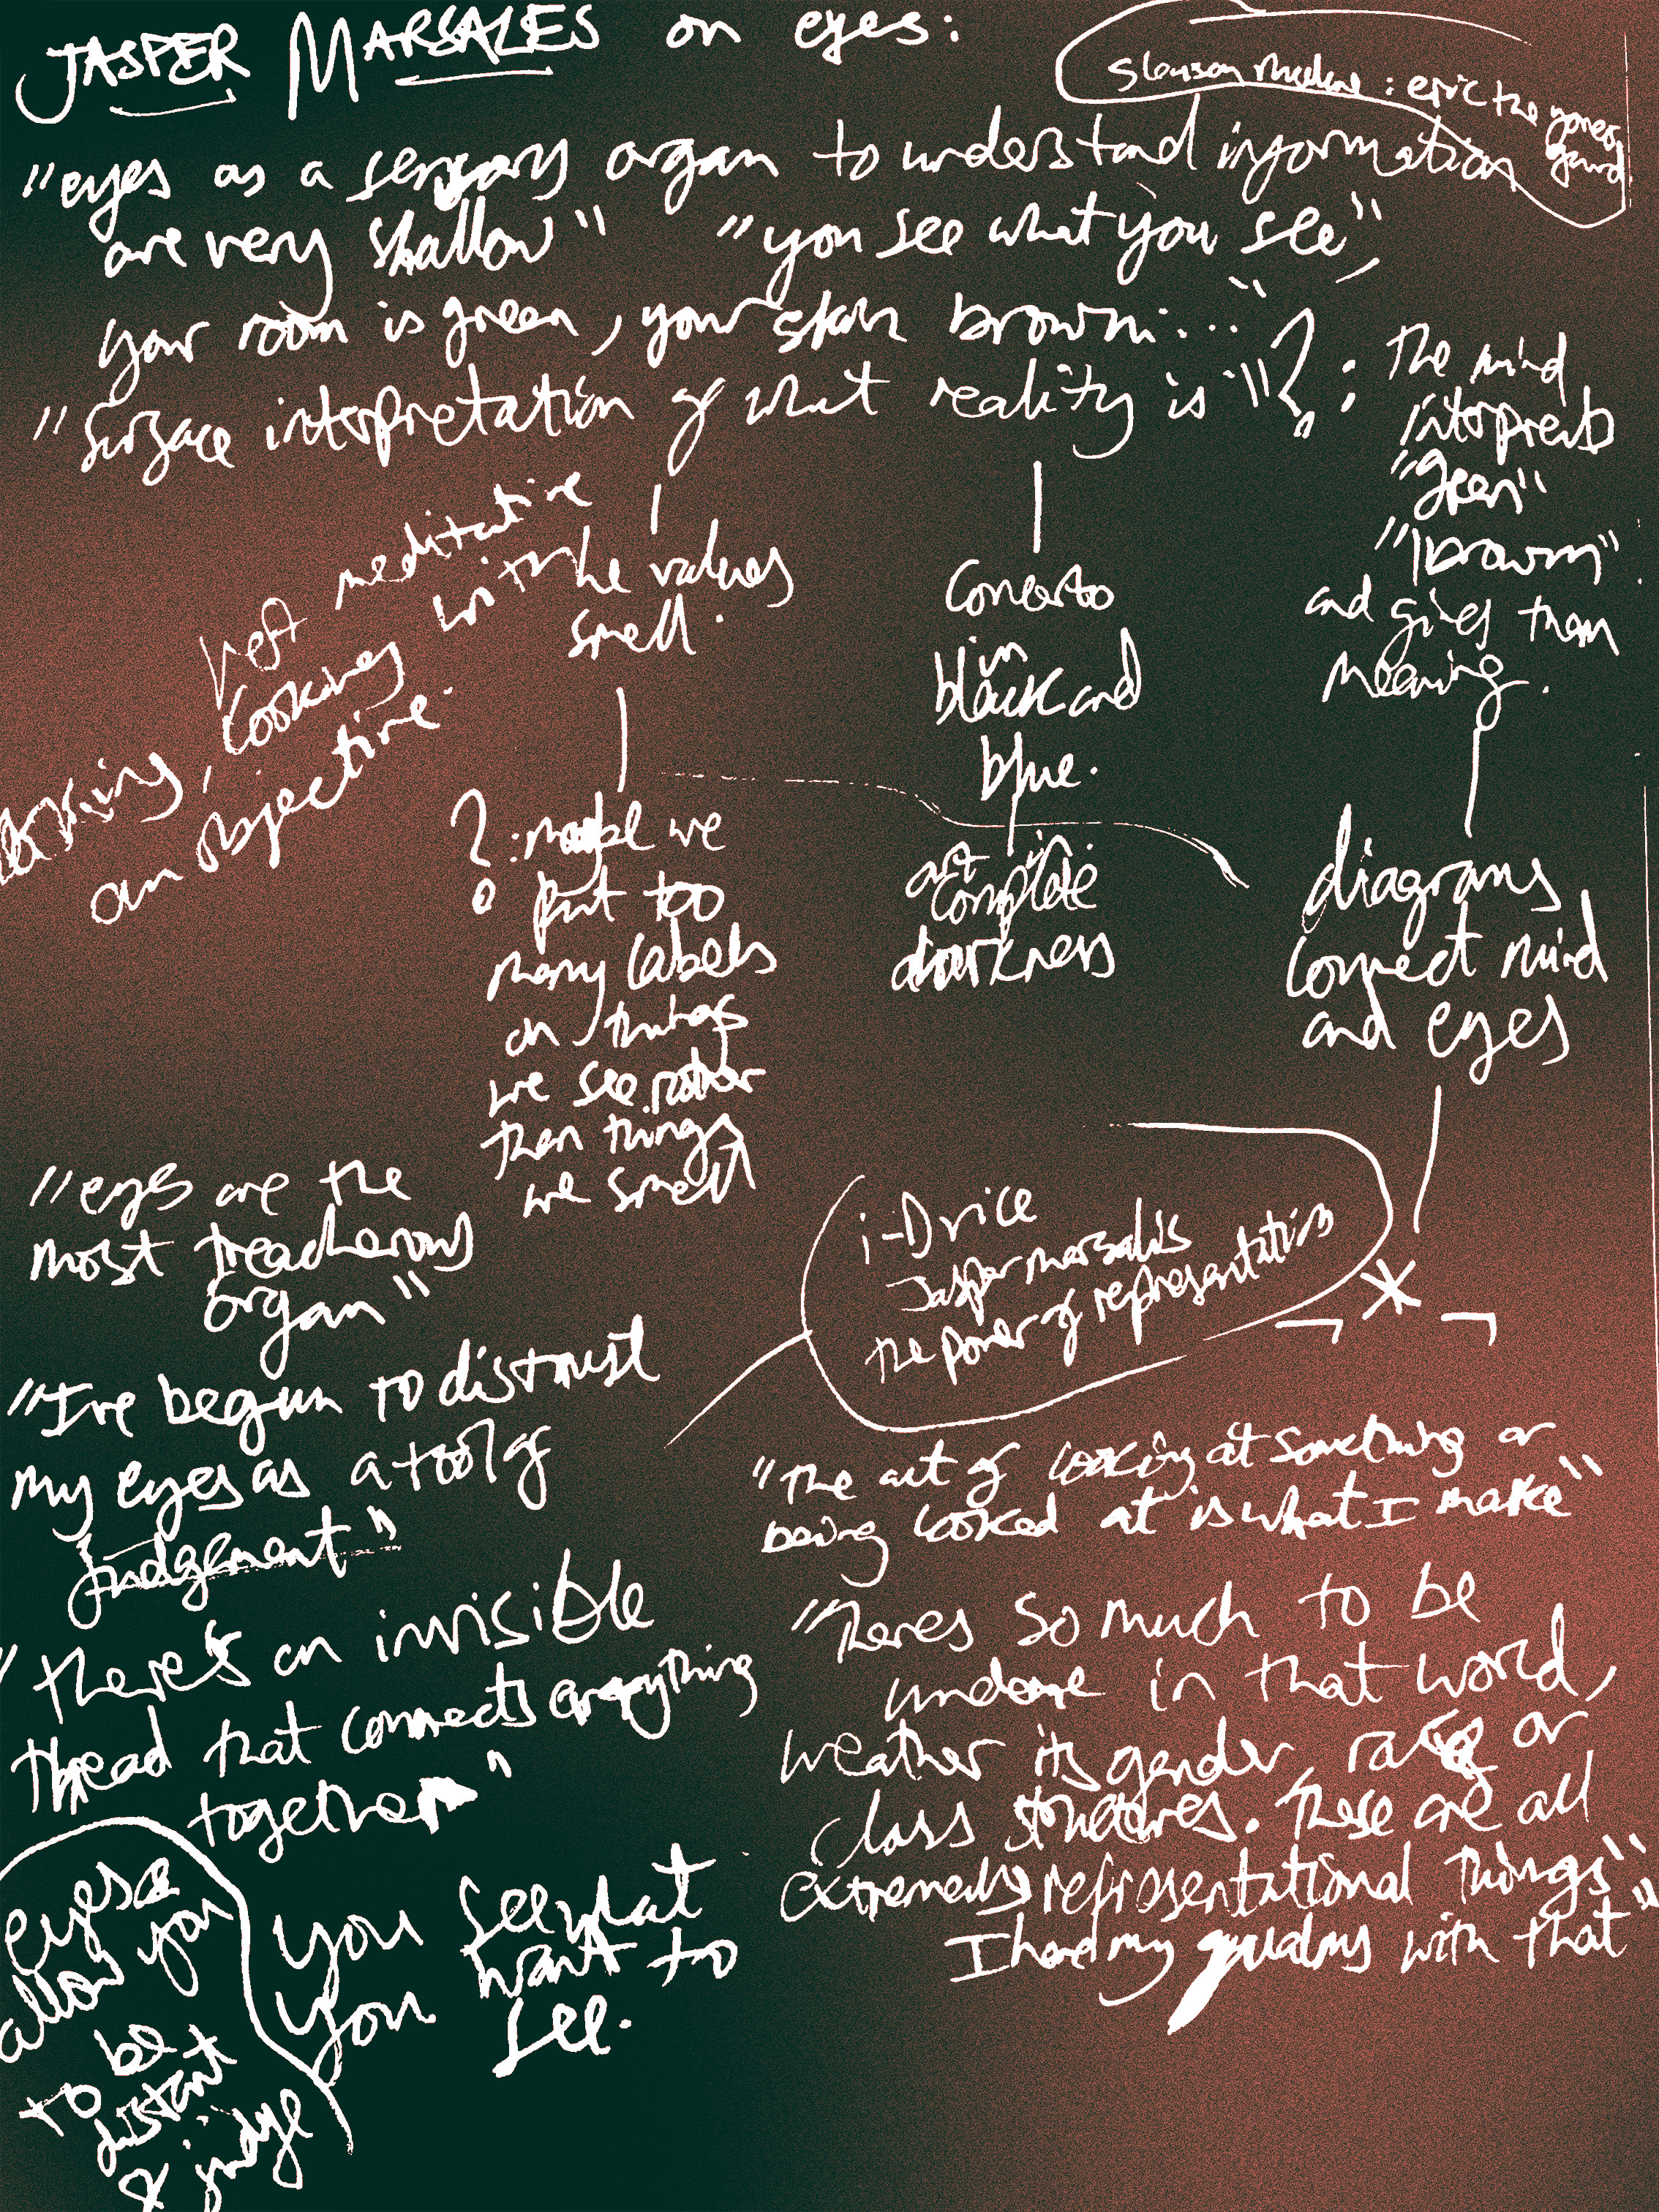 JASPER MARSALES on eyes:
slauson malone: eric the yoner
"eyes as a sensory organ to understand information
are very shallow" "you see what you see,
your room is green, your skin brown..."
"surface interpretation of what reality is"?:
The mind
interprets
"green"
"brown"
and gives them
meaning.
diagrams
connect mind
and eyes
Concerto
in
black and
blue.
art in
complete
darkness
he values
smell.
?: maybe we
put too
many labels
on things
we see rather
then things
we smell
meditative
cooking with
an objective.
"eyes are the
most treacherous
organ"
"I've begun to distrust
my eyes as a tool of
judgement"
"there's an invisible
thread that connects everything
together"
eyes
allow you
to be
distant
& judge
you see what
you want to
see.
i-D vice
Jasper marsalis
the power of representation
"The act of looking at something or
being looked at is what I make"
"Theres so much to be
undone in that world,
weather its gender, race or
class structures. These are all
extremely representational things"
I had my with that"